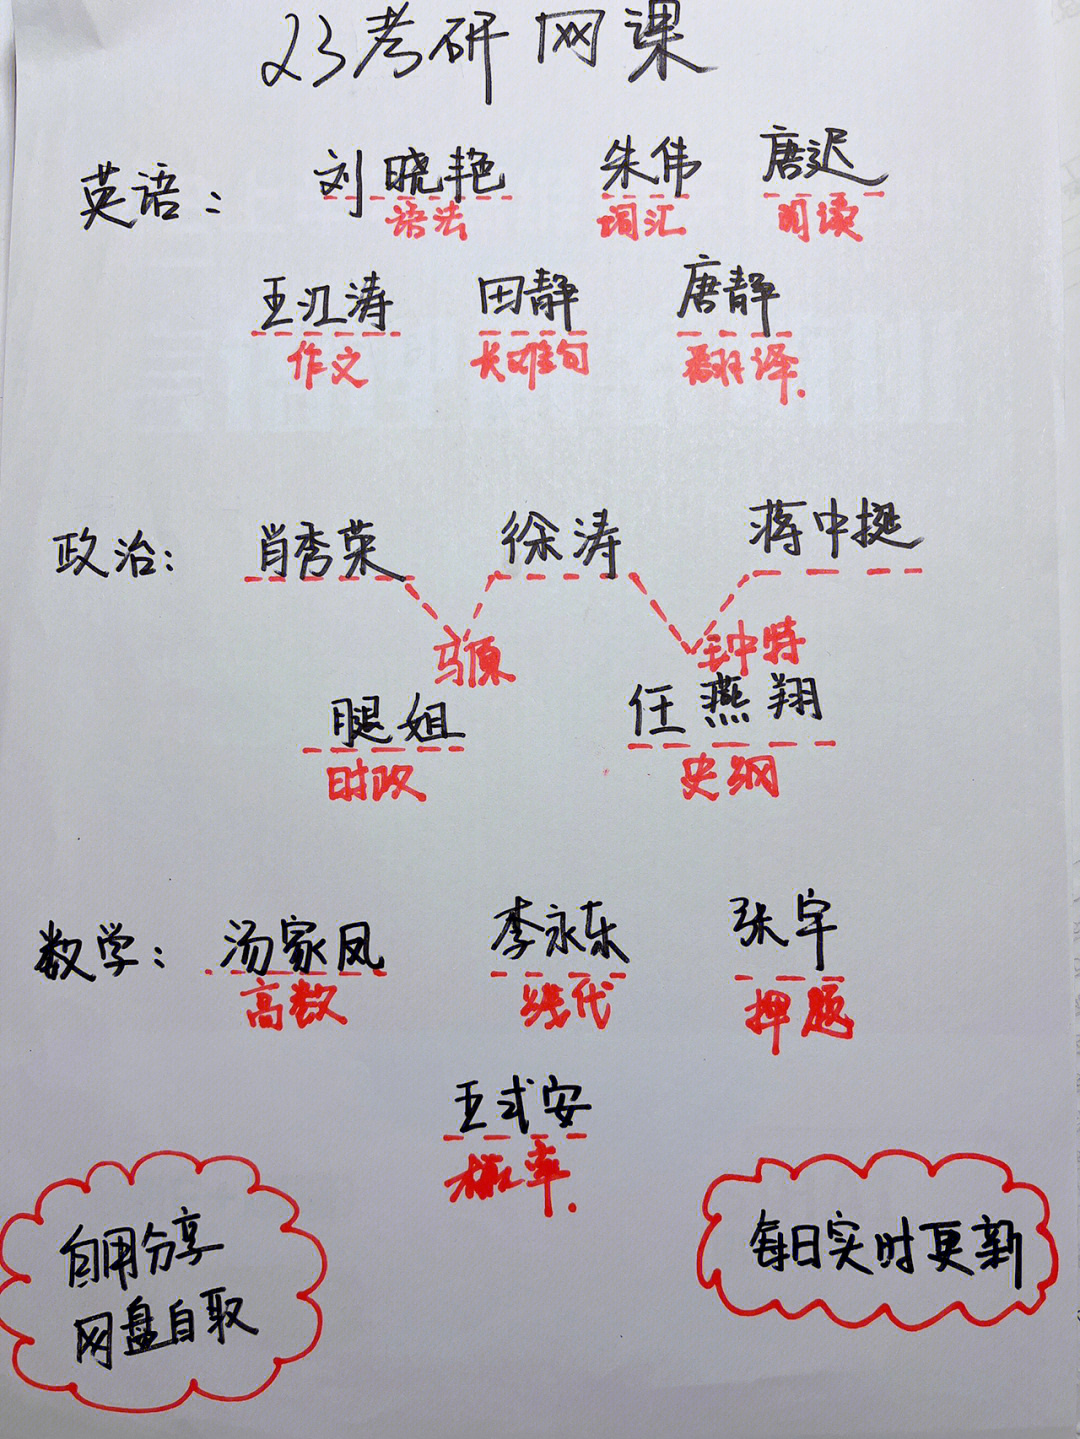 23考研网课
英语： 刘晓艳 朱伟 唐迟
语法 词汇 阅读
王江涛 田静 唐静
作文 长难句 翻译.
政治： 肖秀荣 徐涛 蒋中挺
马原 钟特
腿姐 任燕翔
时政 史纲
数学： 汤家凤 李永东 张宇
高数 线代 押题
王式安
概率.
自用分享
网盘自取
每日实时更新